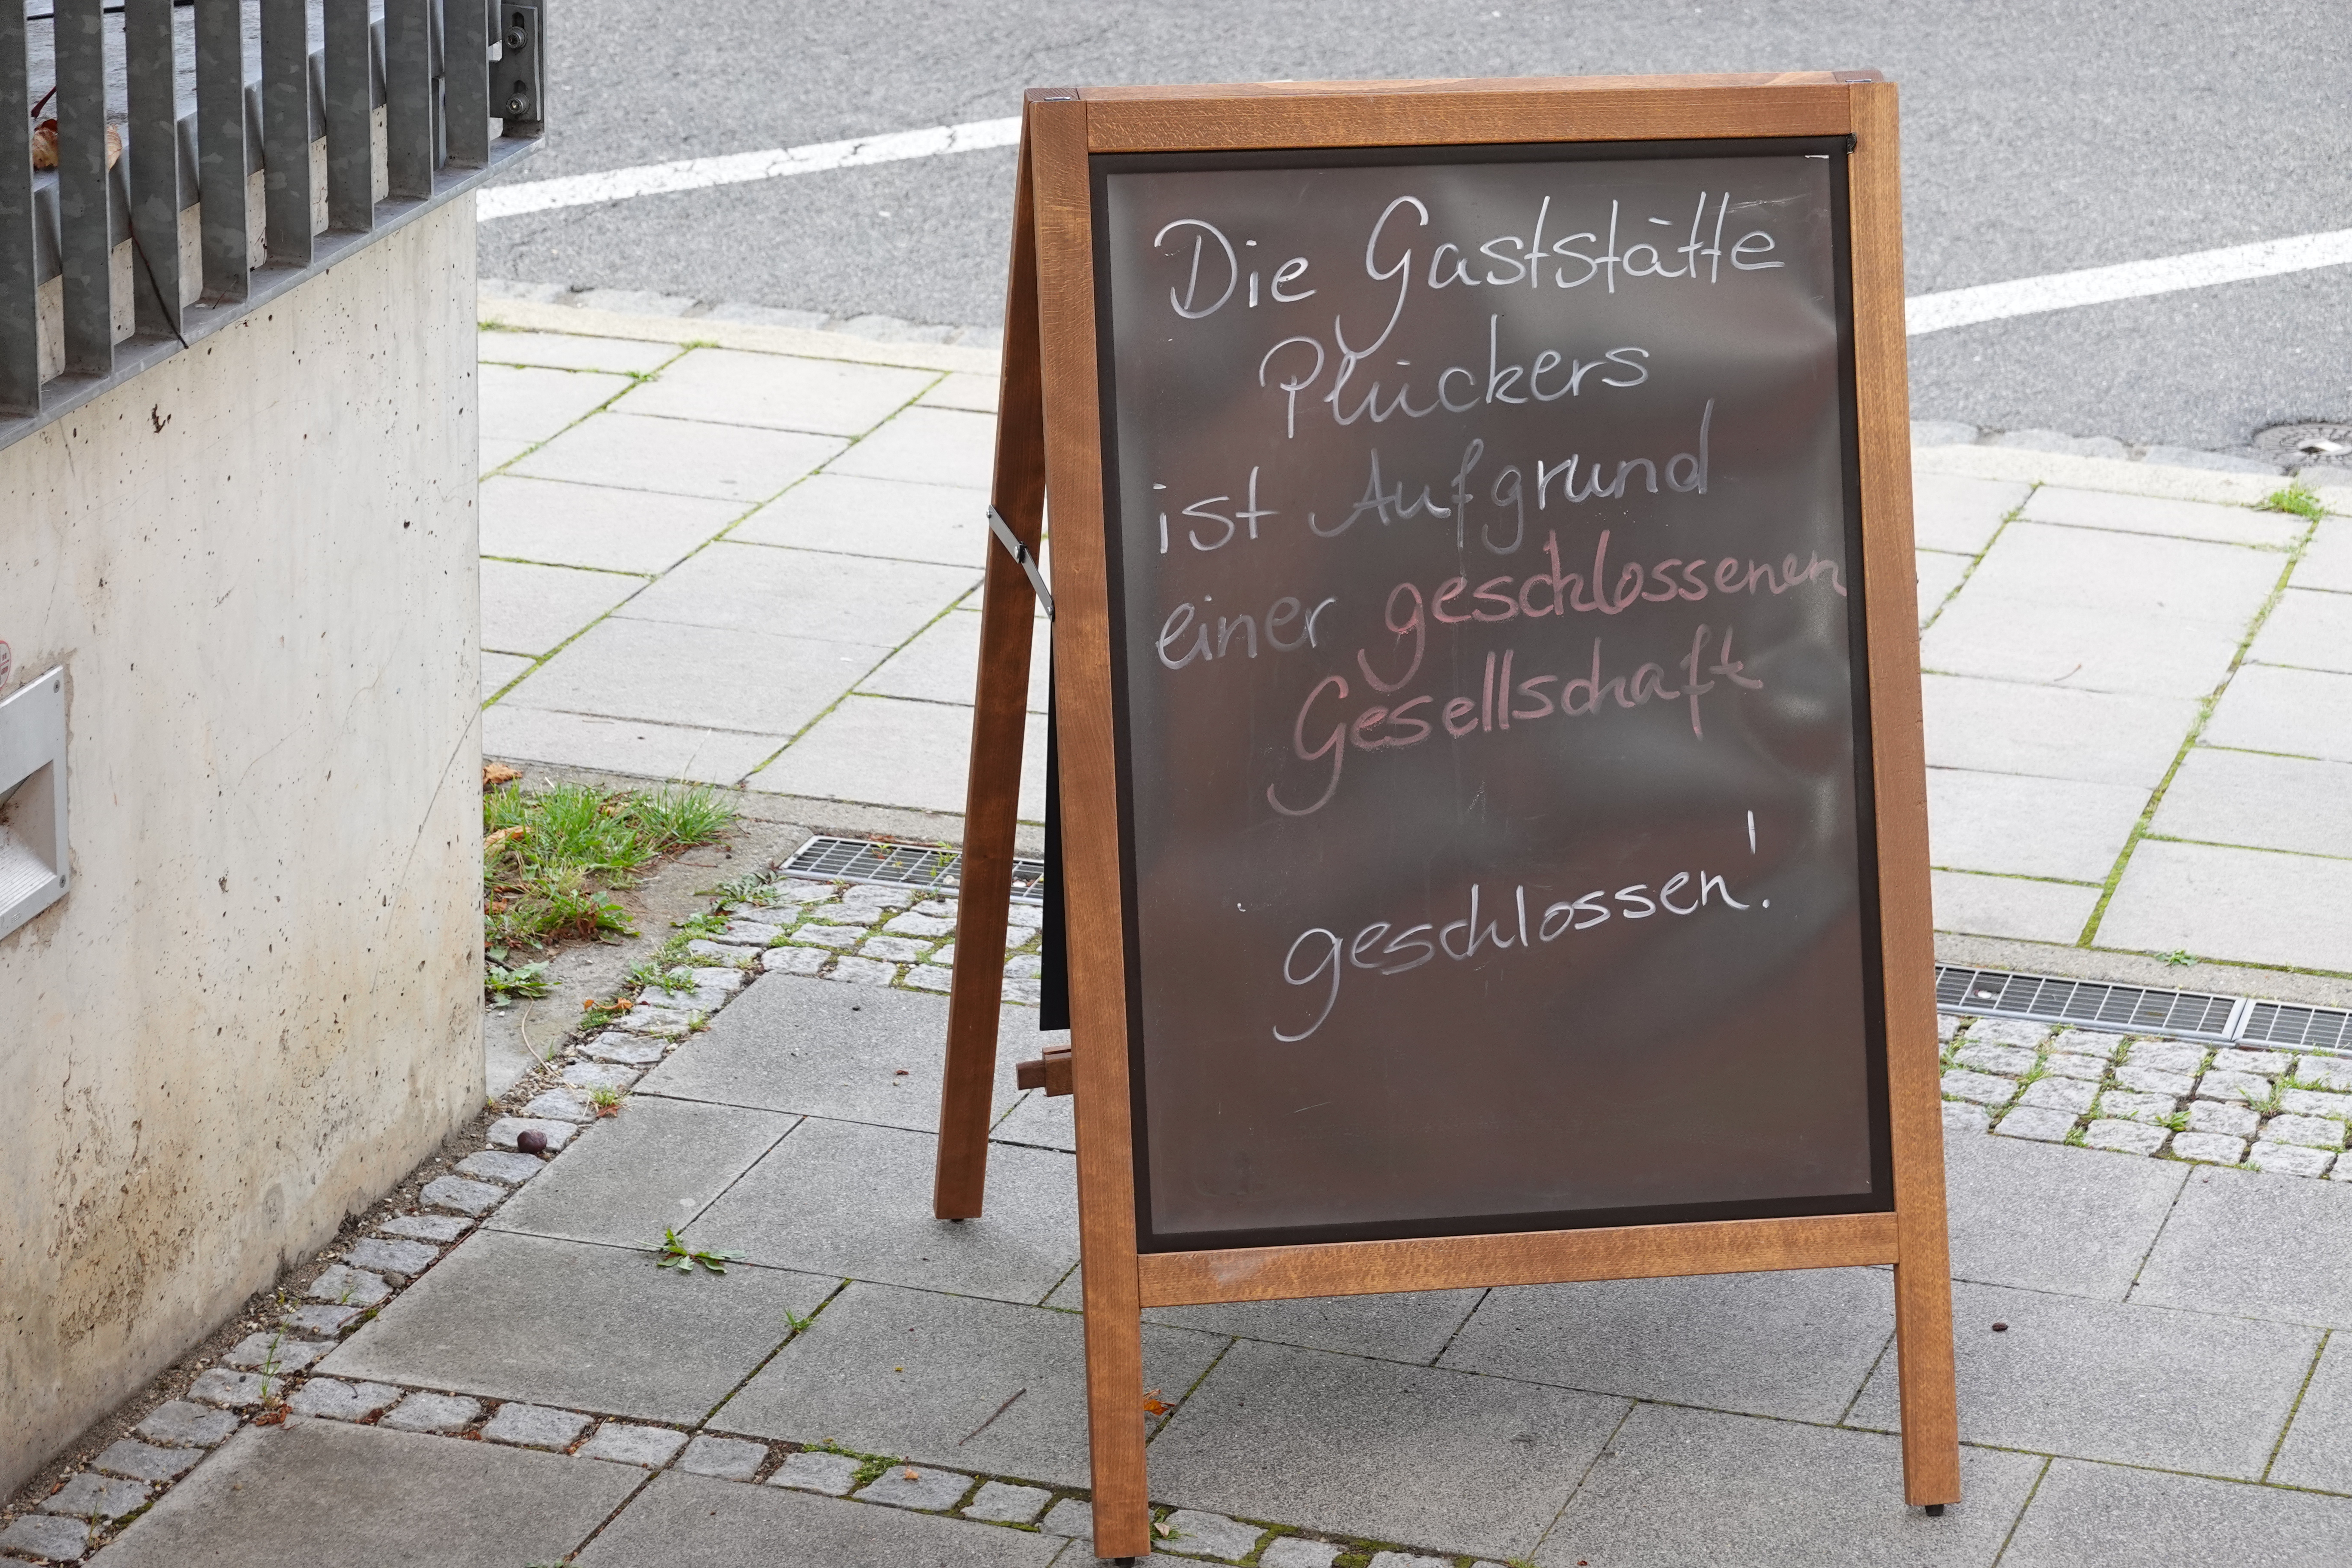 Die Gaststätte
Plückers
ist Aufgrund
einer geschlossenen
Gesellschaft
geschlossen!